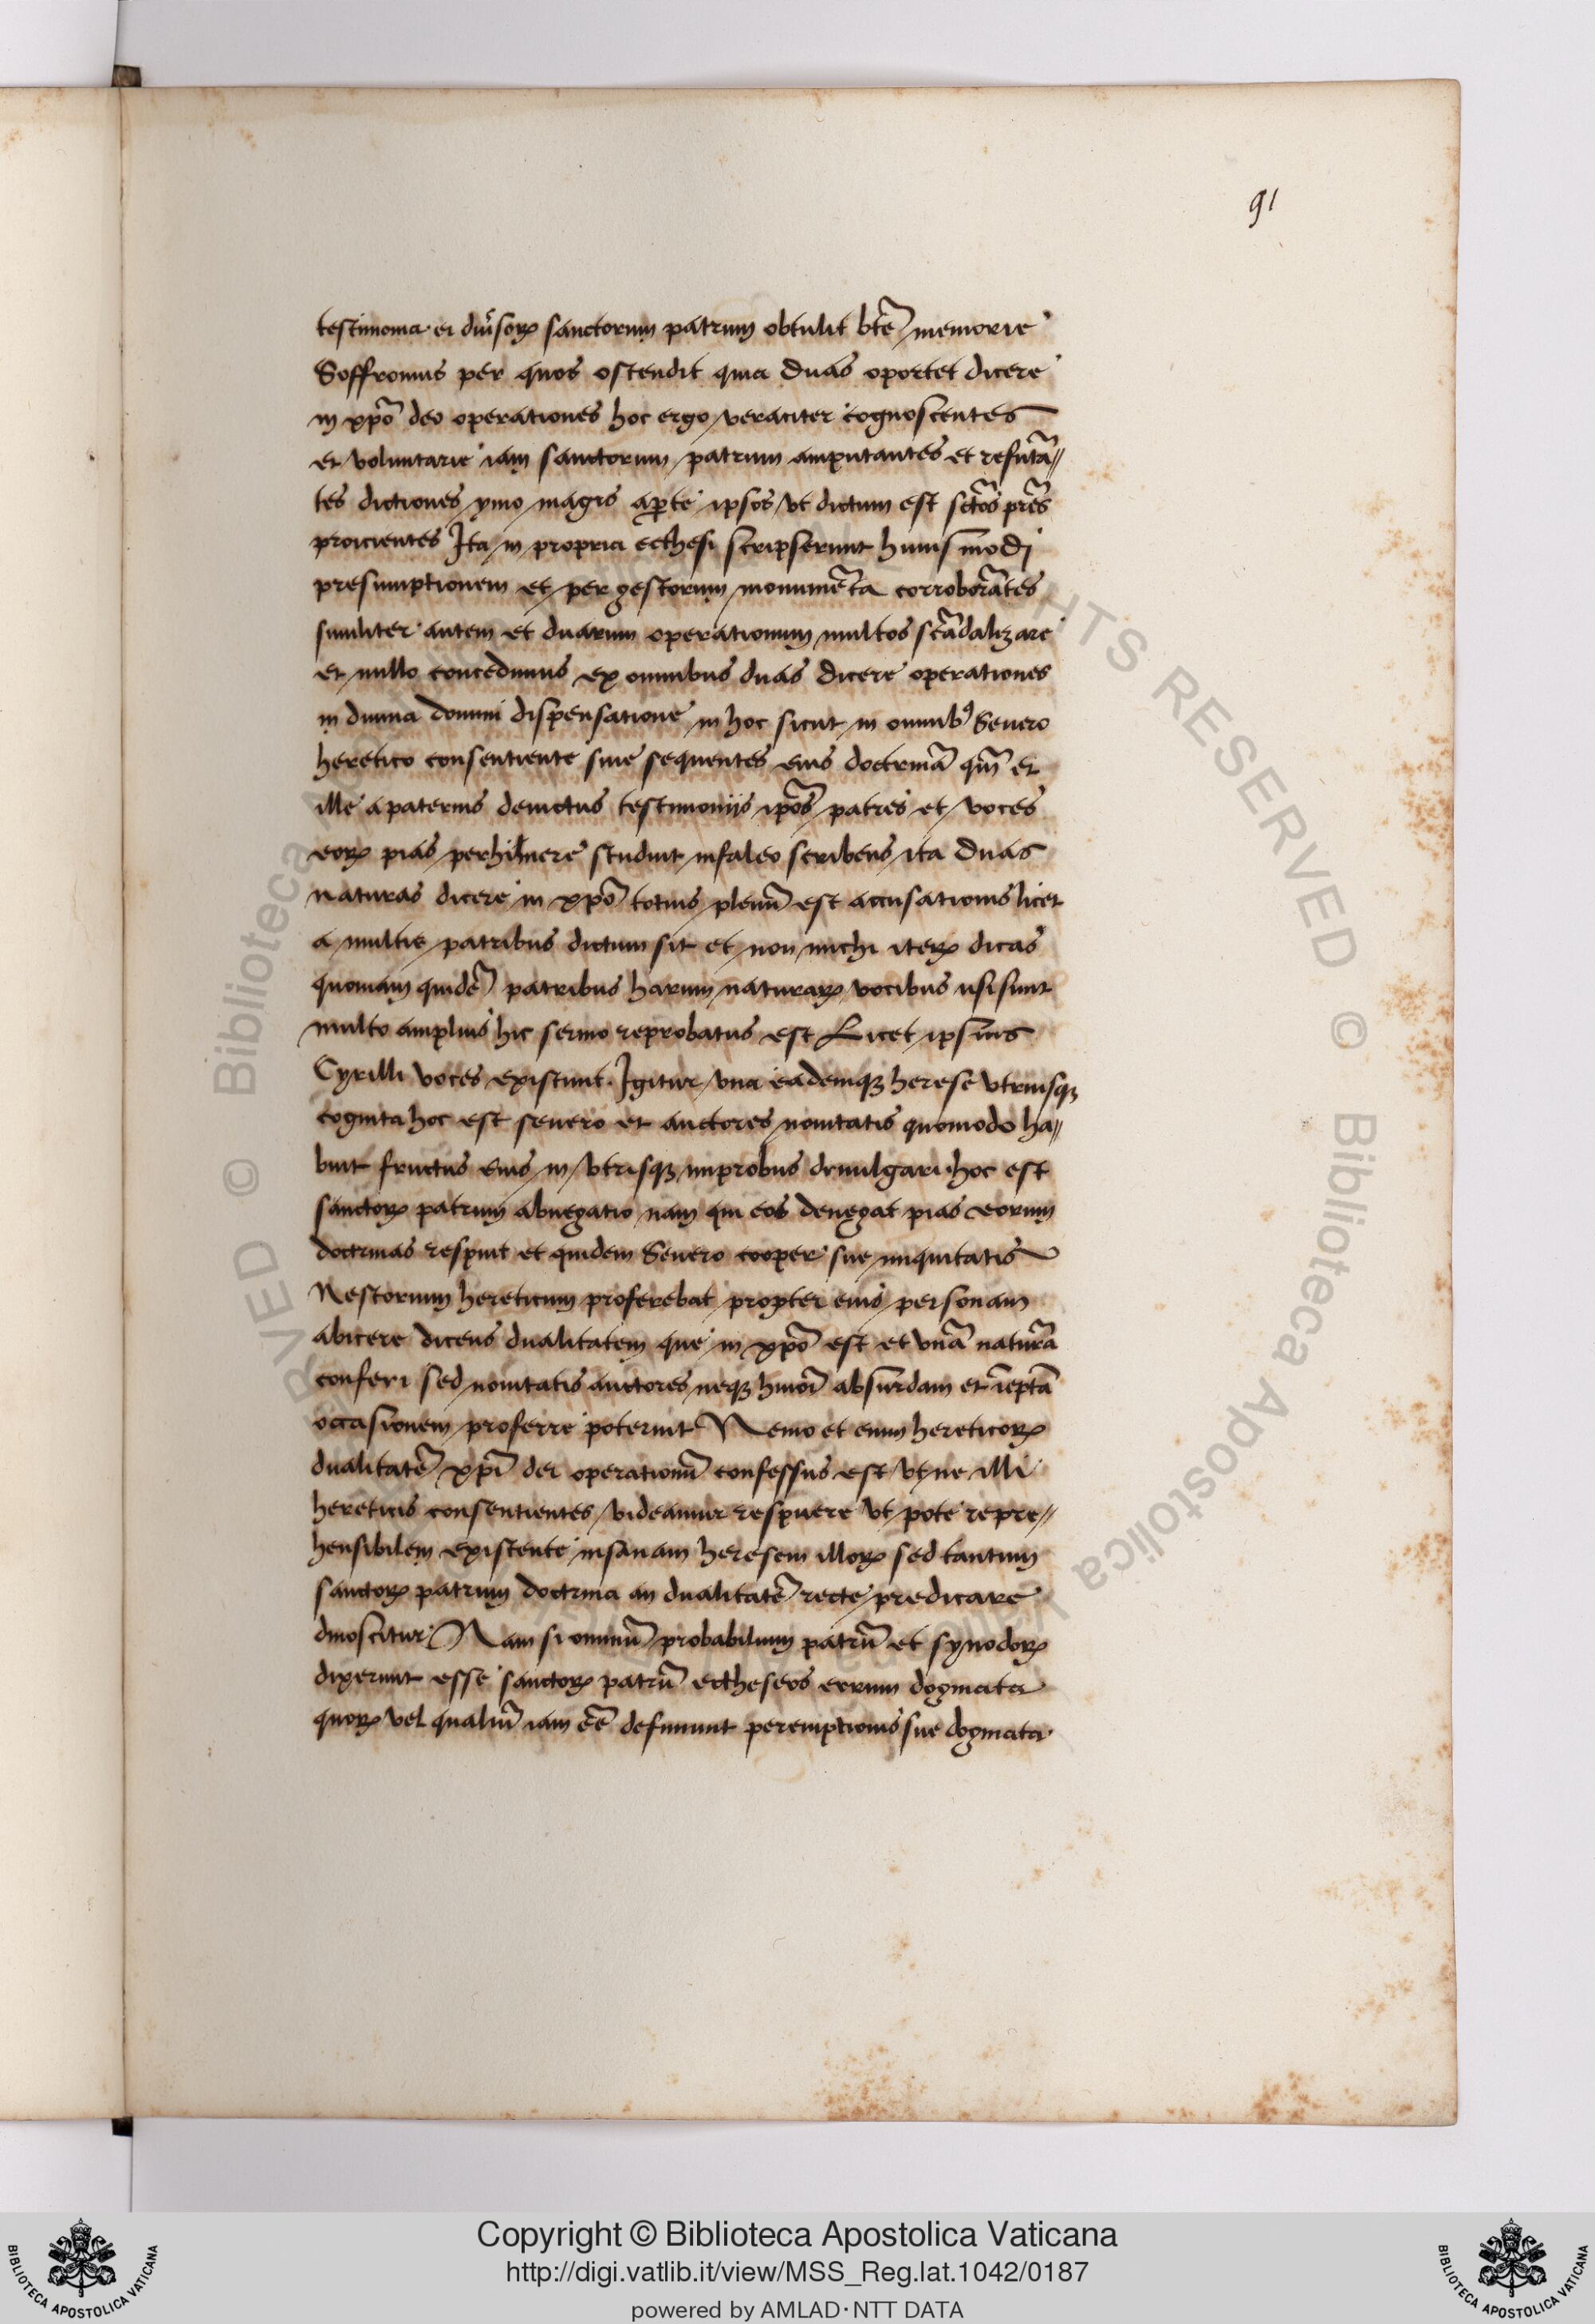 91
testimonia ei diu͛soꝝ sanctorum patrum obtulit bte᷈ memorie
Soffronius per quos ostendit quia duas oportet dicere
in xpo᷈ deo operationes hoc ergo veraciter cognoscentes
et voluntarie iam sanctorum patrum amputantes et refuta᷈〃
tes dictiones ymo magis aꝑte ipsos vt dictum est scto᷈s pre᷈s
proicientes Ita in propria ecthesi scripserunt huiusmodi
presumptionem et per gestorum monume᷈ta corrobora᷈tes
similiter autem et duarum operationum multos sca᷈dalizare
et nullo concedimus ex omnibus duas dicere operationes
in diuina domini dispensatione in hoc sicut in omnibꝰ Seuero
heretico consentiente siue sequentes eius doctrina᷈ qm᷈ et
ille a paternis deuictus testimonijs ipo᷈s patres et voces
eoꝝ pias studuit in faleo scribens ita duas
naturas dicere in xpo᷈ totius plenu᷈ est accusationis licet
a multis patribus dictum sit et non michi iteꝝ dicas
quoniam quide᷈ patribus harum naturaꝝ vocibus usi sunt
multo amplius hic sermo reprobatus est Licet ipsius
Cyrilli voces existunt. Igitur vna eademqꝫ herese vtriusqꝫ
cognita hoc est seuero et auctores nouitatis quomodo ha〃
buit fructus eius in vtrisqꝫ improbus diuulgari hoc est
sanctoꝝ patrum abnegatio nam qui eos denegat pias eorum
doctrinas respuit et quidem Seuero cooper sue iniquitatis
Nestorium hereticum proferebat propter eius personam
abicere dicens dualitatem que in xpo᷈ est et vna᷈ natura᷈
conferi sed nouitatis auctores neqꝫ hmoi᷈ absurdam et i᷈epta᷈
occasionem proferre poterunt Nemo et enim hereticoꝝ
dualitate᷈ xpi᷈ dei operationu᷈ confessus est vt ne illi
hereticis consentientes videamur respuere vt pote repre〃
hensibilem existente insanam heresem illoꝝ sed tantum
sanctoꝝ patrum doctrina an dualitate᷈ recte predicare
dinoscitur Nam si omniu᷈ probabilium patru᷈ et synodoꝝ
dixerunt esse sanctoꝝ patru᷈ ectheseos eorum dogmata
quoꝝ vel qualiu᷈ iam ee᷈ definiunt peremptionis sue dogmata
Copyright © Biblioteca Apostolica Vaticana
http://digi.vatlib.it/view/MSS_Reg.lat.1042/0187
powered by AMLAD·NTT DATA